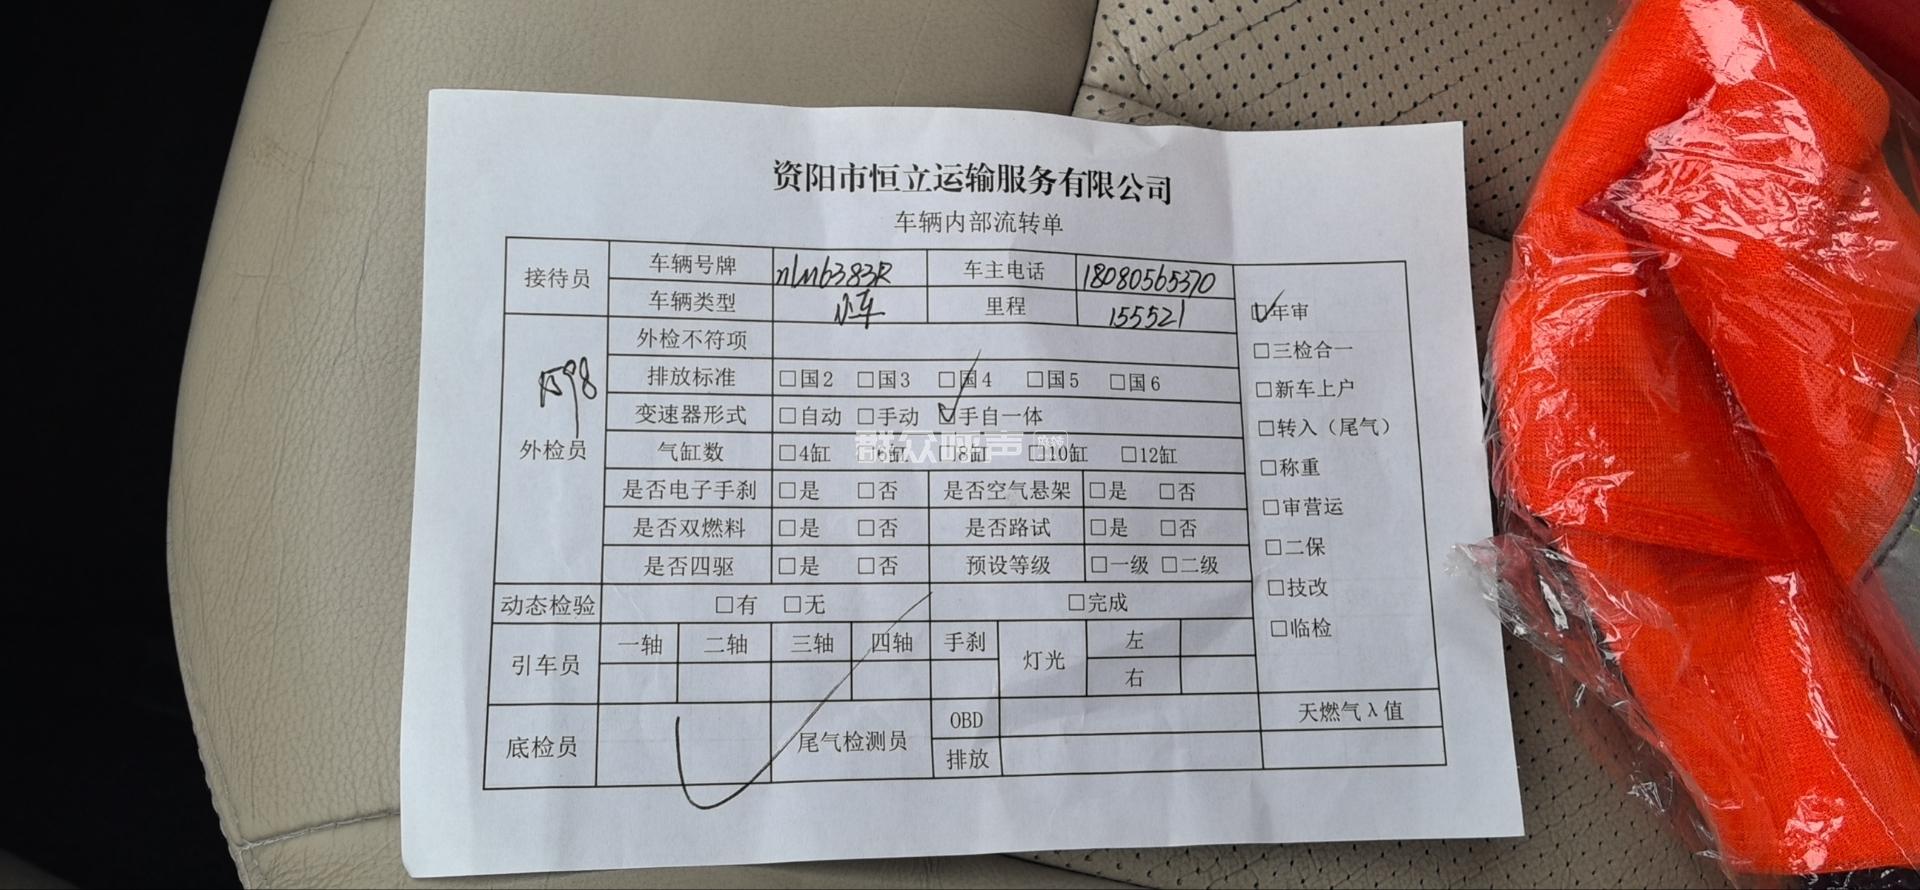 资阳市恒立运输服务有限公司
车辆内部流转单
接待员 车辆号牌 车主电话 18080565370
车辆类型 小车 里程 155521
外检员
外检不符项
排放标准 □国2 □国3 □国4 □国5 □国6
变速器形式 □自动 □手动 □手自一体
气缸数 □4缸 □6缸 □8缸 □10缸 □12缸
是否电子手刹 □是 □否 是否空气悬架 □是 □否
是否双燃料 □是 □否 是否路试 □是 □否
是否四驱 □是 □否 预设等级 □一级 □二级
动态检验 □有 □无 □完成
引车员 一轴 二轴 三轴 四轴 手刹 灯光 左
右
底检员 尾气检测员 OBD
排放
□年审
□三检合一
□新车上户
□转入（尾气）
□称重
□审营运
□二保
□技改
□临检
天燃气λ值
群众呼声